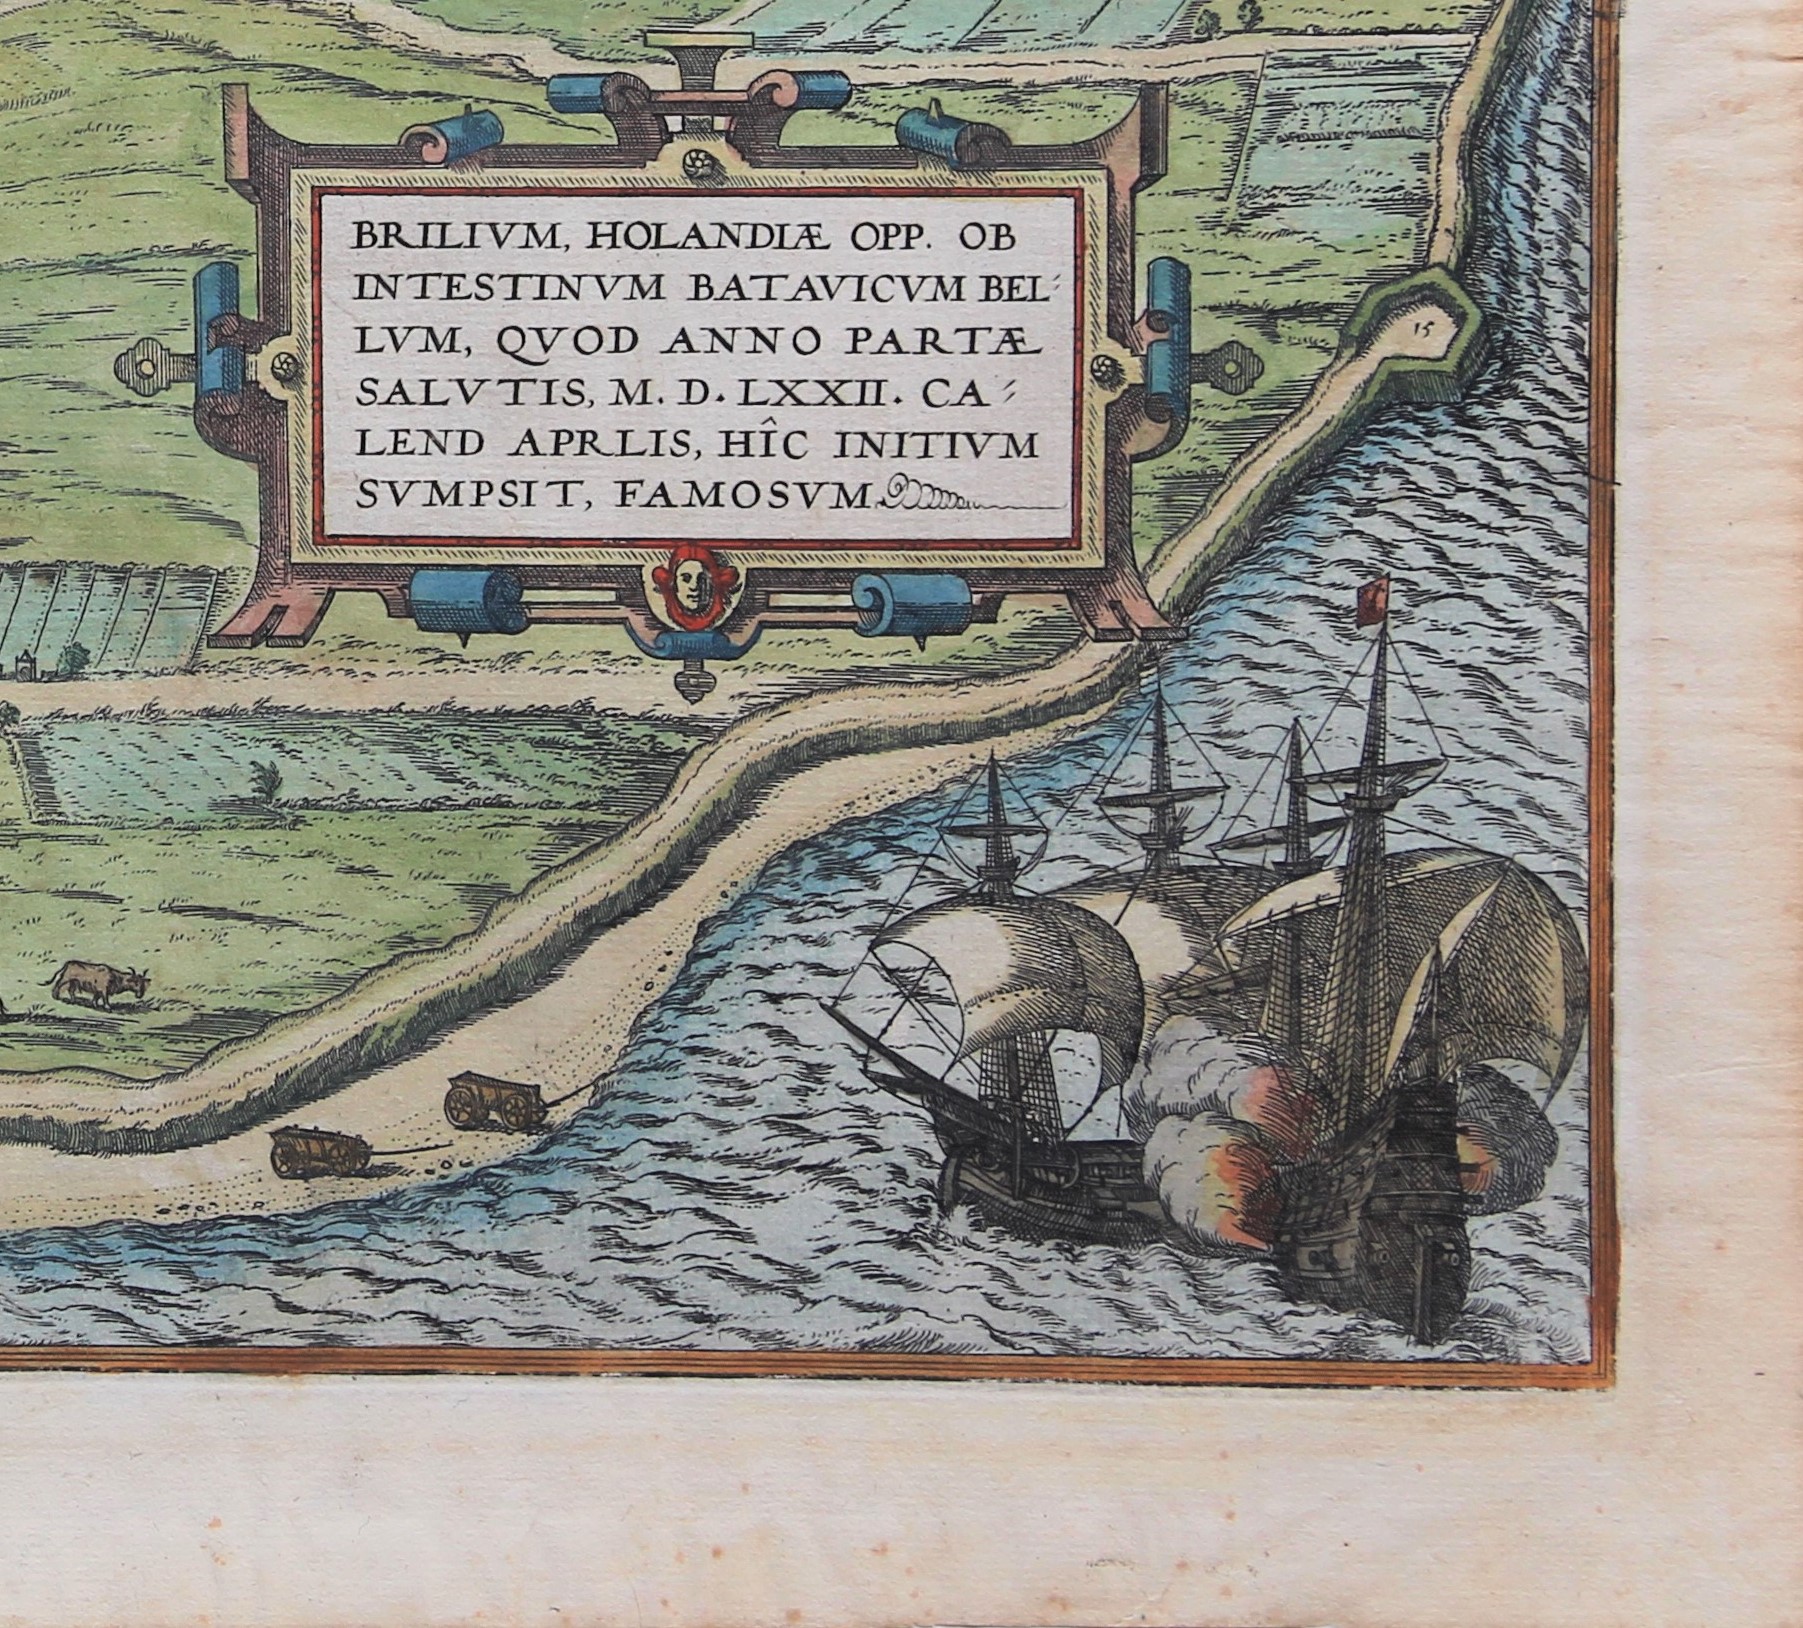 BRILIVM, HOLANDIÆ OPP. OB
INTESTINVM BATAVICVM BEL⸗
LVM, QVOD ANNO PARTÆ
SALVTIS, M. D. LXXII. CA⸗
LEND APRLIS, HÎC INITIVM
SVMPSIT, FAMOSVM
15